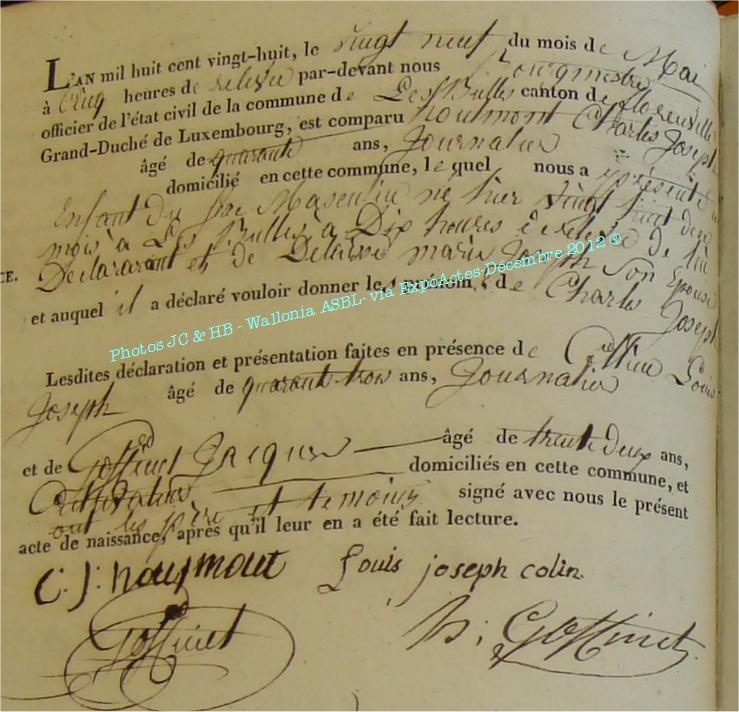 L'AN mil huit cent vingt-huit, le vingt neuf du mois de Mai
à Cinq heures de relevée par-devant nous Bourgmestre
officier de l'état civil de la commune de Les Bulles canton de florenville
Grand-Duché de Luxembourg, est comparu houmont Charles Joseph
âgé de quarante ans, Journalier
domicilié en cette commune, lequel nous a présenté un
Enfant du sexe Masculin né hier vingt huit du
mois à Les Bulles à Dix heures de lui
CE.
Déclararant et de marie Joseph Son Epouse
et auquel il a déclaré vouloir donner les prénoms de Charles Joseph
Photos JC & HB - Wallonia ASBL- via ExpoActes-Décembre 2012 ®
Lesdites déclaration et présentation faites en présence de Louis
Joseph âgé de quarante trois ans, Journalier
et de Goffinet Jacques âgé de trente deux ans,
Cultivateur domiciliés en cette commune, et
ont les père et temoins signé avec nous le présent
acte de naissance, après qu'il leur en a été fait lecture.
C: J: houmont Louis joseph colin.
Goffinet Goffinet